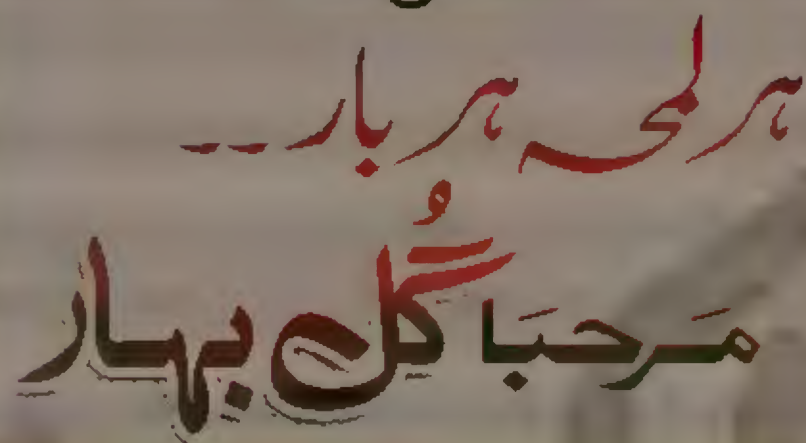 ہر لمحہ ہر بار ۔۔
مَرحبَا گُل بہار